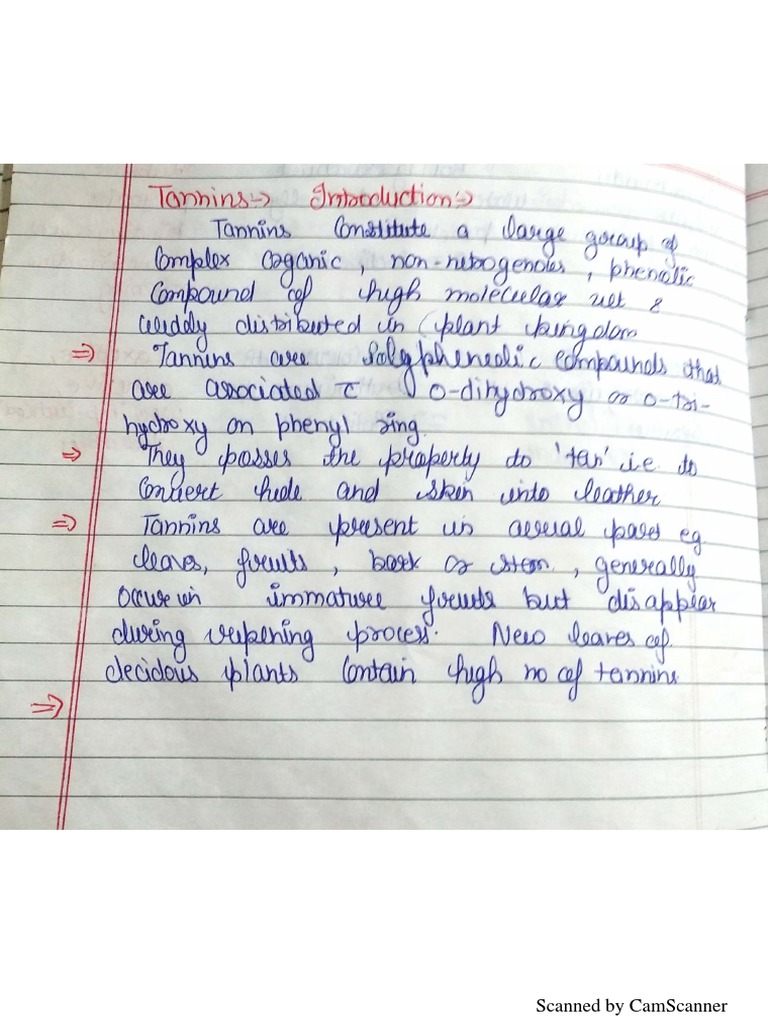 Tannins:-> Introduction:->
Tannins Constitute a large group of
Complex organic, non-netrogenoles, phenolic
Compound of high molecular wt &
widdly distributed in plant kingdom
=> Tannins are Polyphenolic compounds that
are associated c̄ o-dihydroxy or o-tri-
hydroxy on phenyl ring.
=> They posses the property to 'tan' i.e to
Convert hide and skin into leather
=> Tannins are present in aerial pares eg
leaves, fruits, bark or stem, generally
Occur in immature fruits but disappear
during ripening process. New leaves of
decidous plants Contain high no of tannins
=>
Scanned by CamScanner